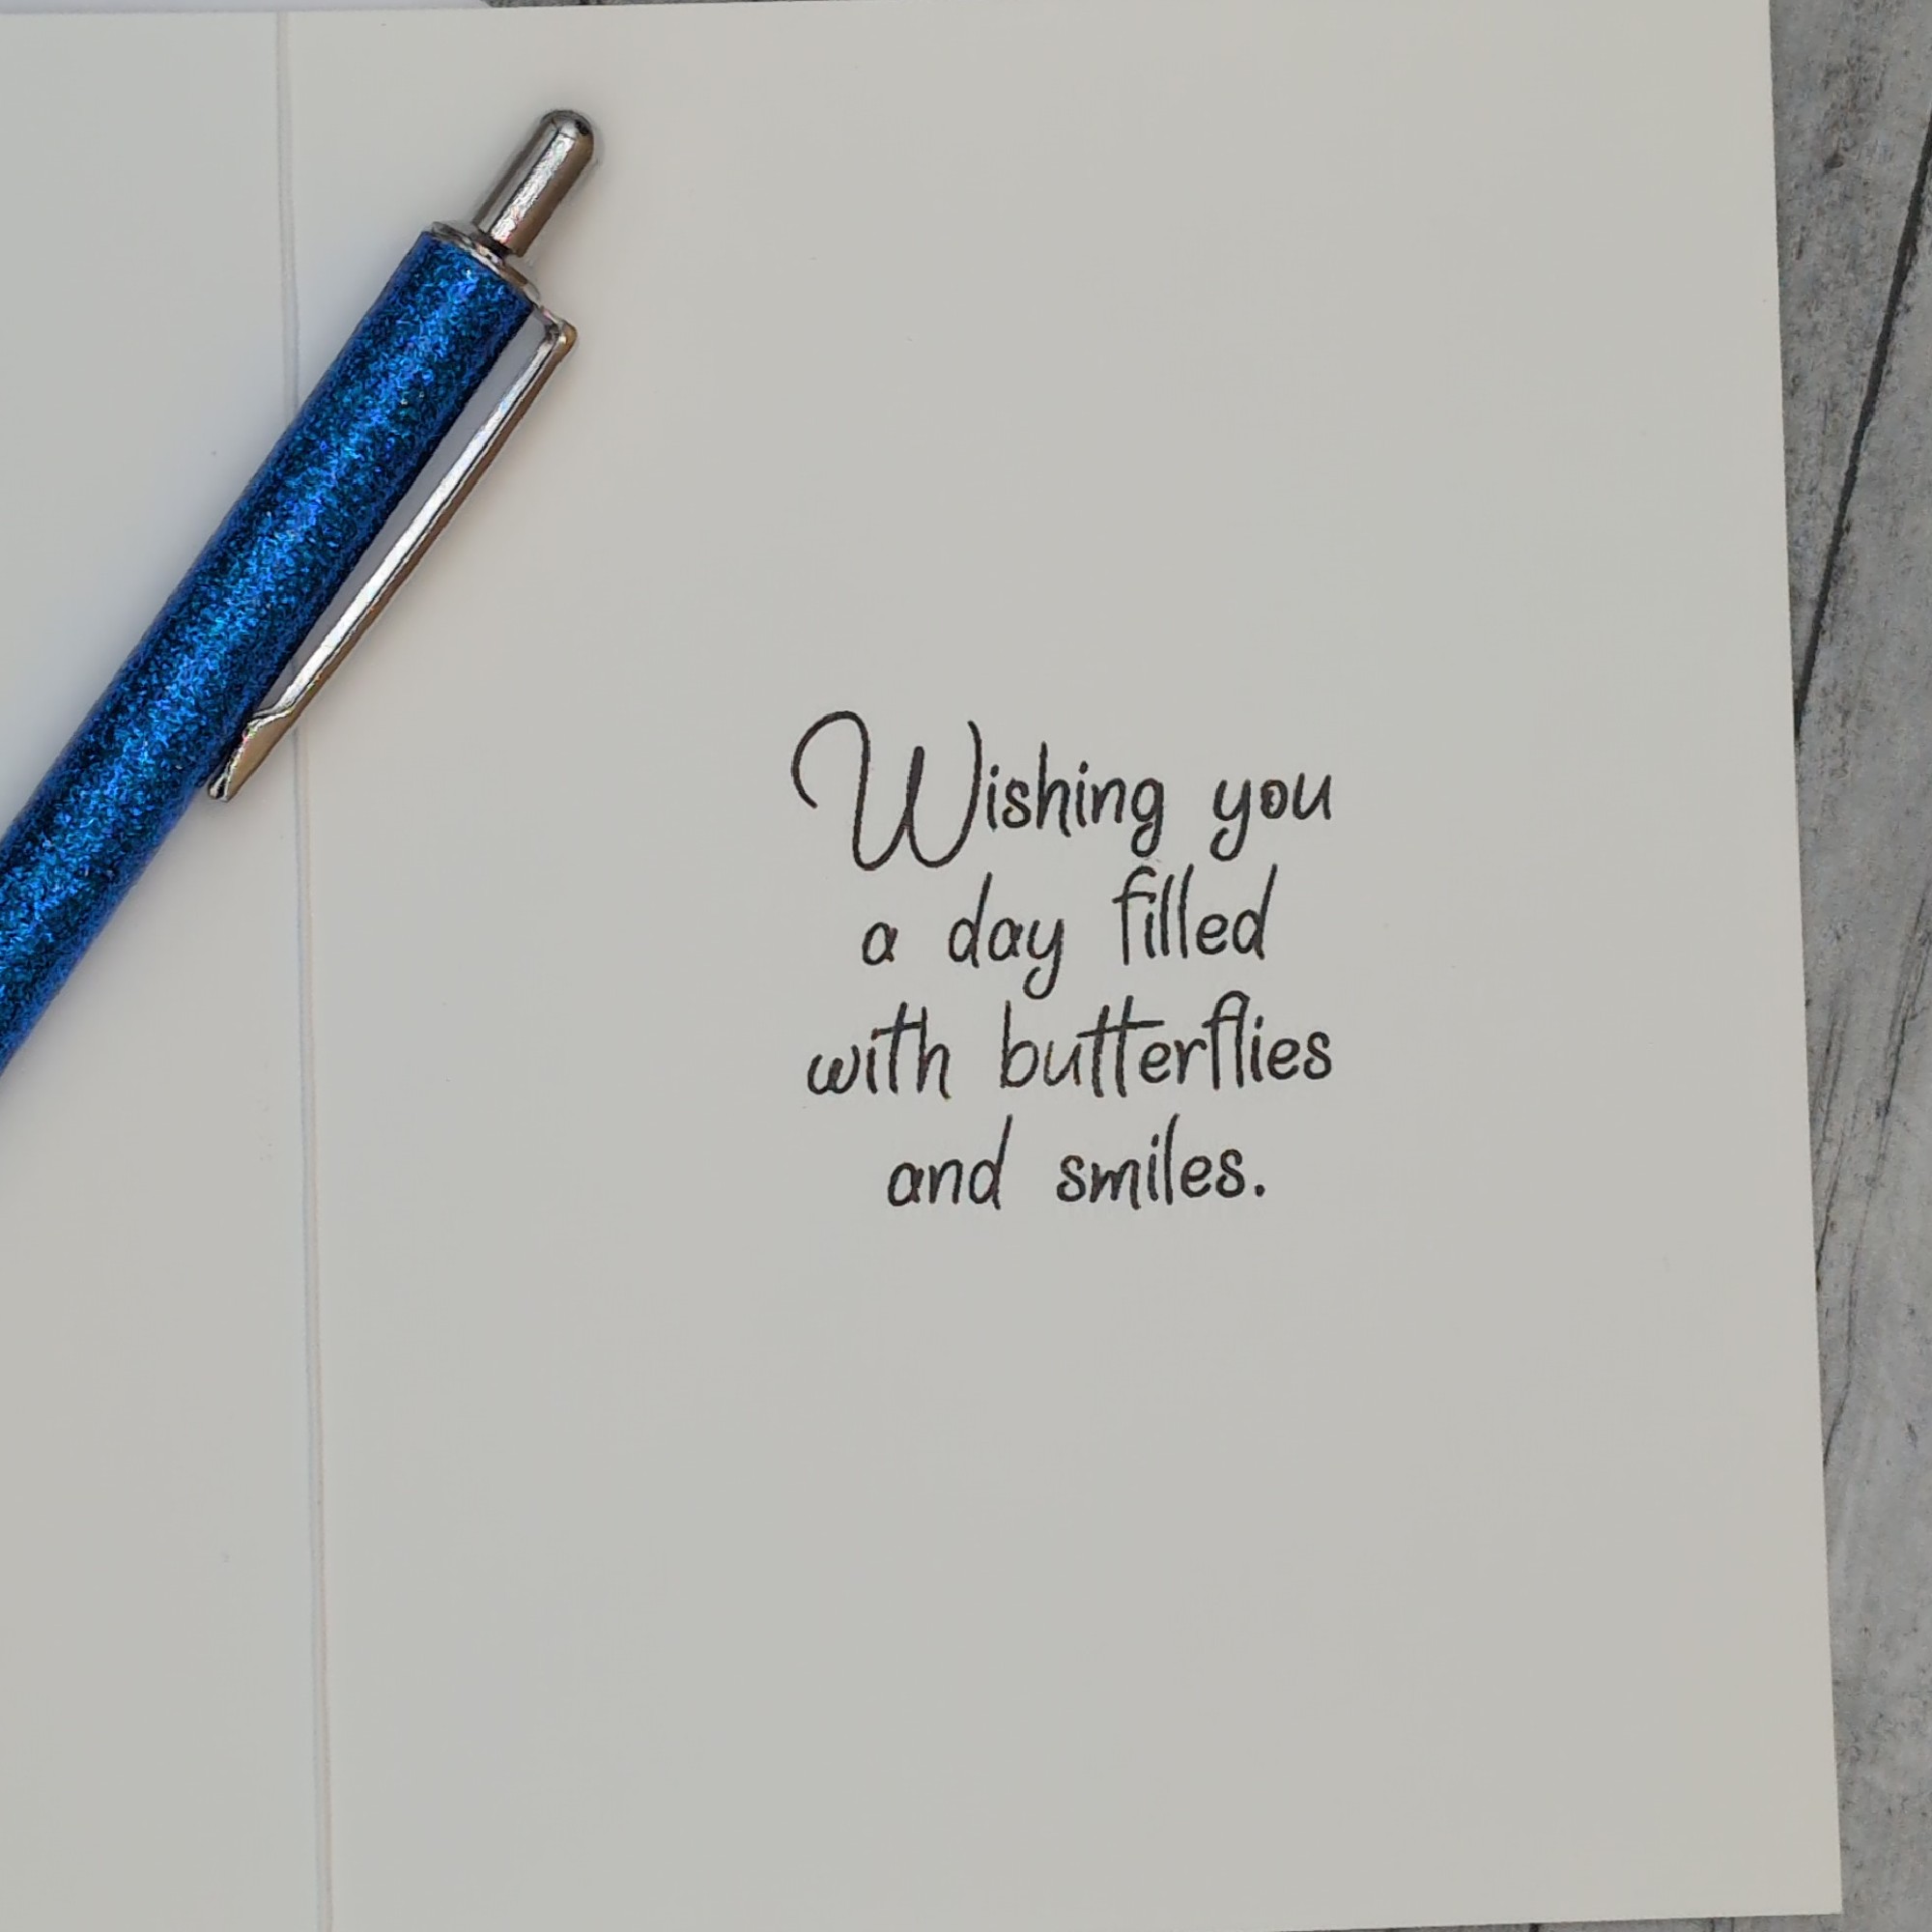 Wishing you
a day filled
with butterflies
and smiles.